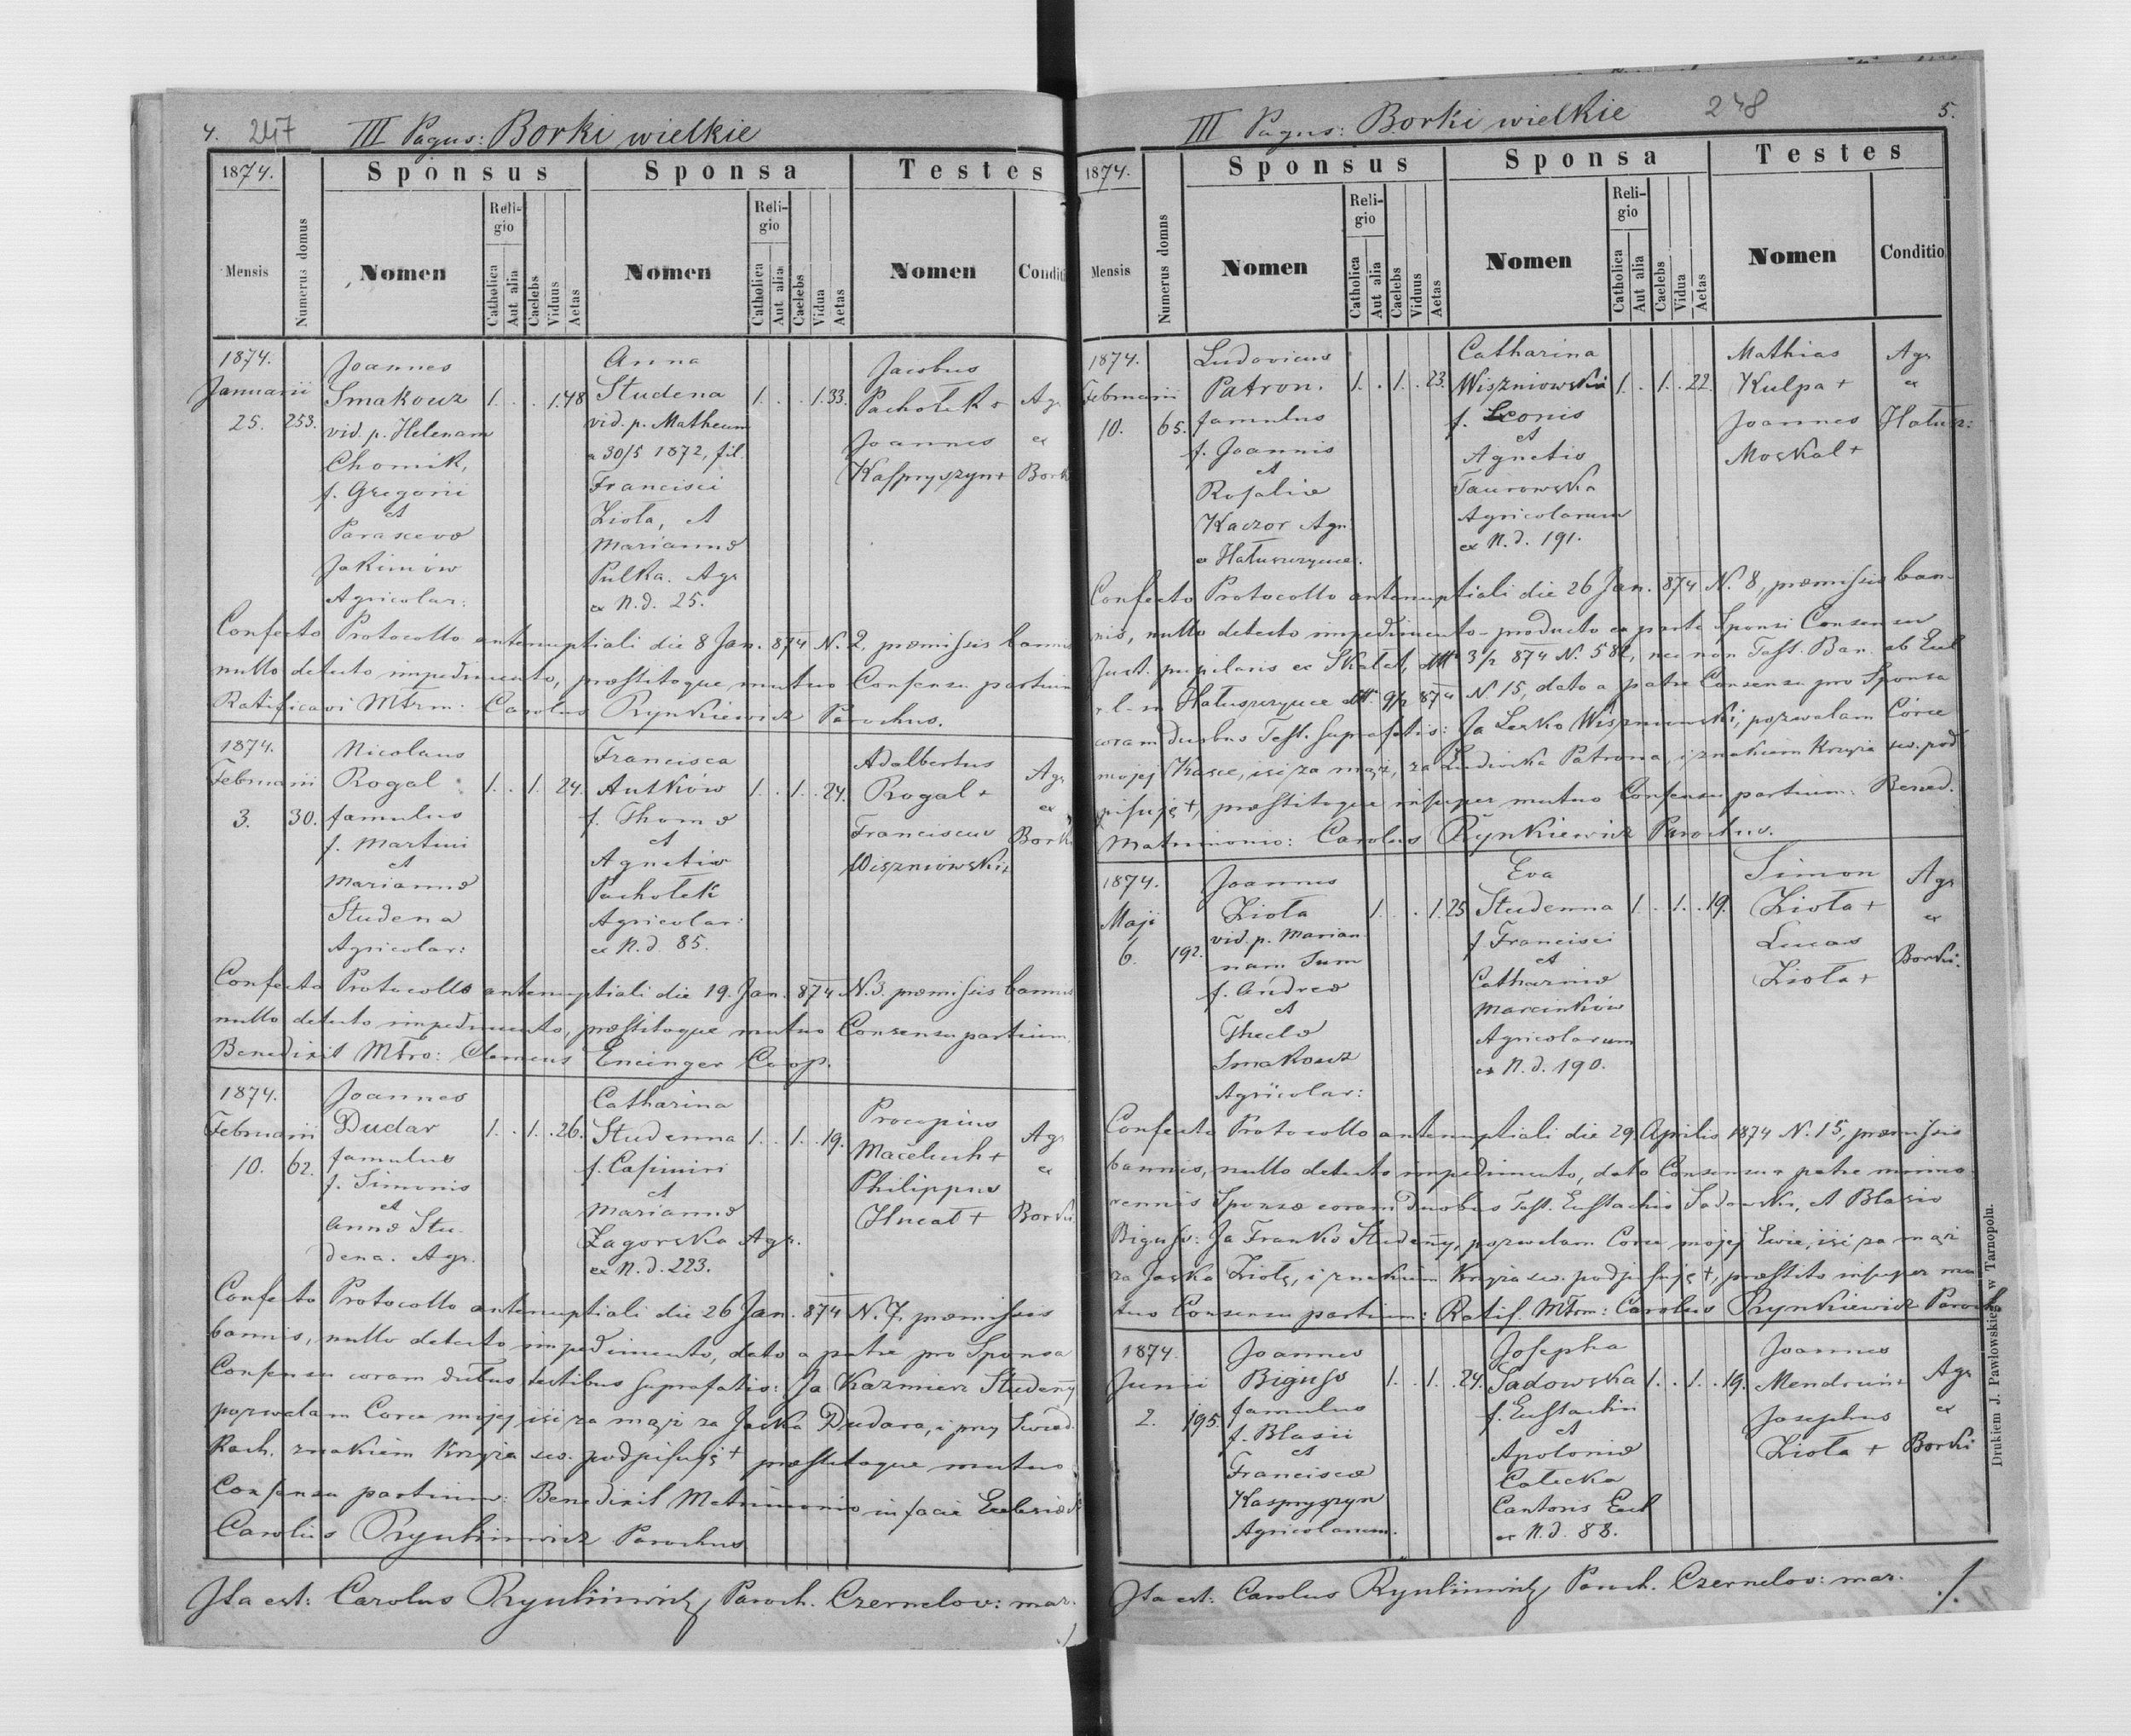 4. 247 III Pagus: Borki wielkie
1874. Sponsus Sponsa Testes
Mensis Numerus domus Nomen Religio Catholica Aut alia Caelebs Viduus Aetas Nomen Religio Catholica Aut alia Caelebs Vidua Aetas Nomen Conditi
1874. Joannes Anna Jacobus
Januarii Smakouz 1. . . 1. 48 Studena 1. . . 1. 33. Pachołek + Agr
25. 253. vid. p. Helenam vid. p. Matheum Joannes ex
Chomik, a 30/5 1872, fil. Kaspryszyn + Bork
f. Gregorii Francisci
et Zioła, et
Parascevæ Mariannæ
Jakimów Pulka. Agr
Agricolar: ex N. d. 25.
Confecto Protocollo antenuptiali die 8 Jan. 874 N. 2, præmissis bannis
nullo detecto impedimento, præstitoque mutuo Consensu partium
Ratificavi Mtrm: Carolus Rynkiewicz Parochus.
1874. Nicolaus Francisca Adalbertus
Februarii Rogal 1. . 1. . 24. Autków 1. . 1. . 24. Rogal + Agr
3. 30. famulus f. Thomæ Franciscus ex
f. Martini et Wiszniowski + Bork
et Agnetis
Mariannæ Pachołek
Studena Agricolar:
Agricolar: ex N. d. 85.
Confecto Protocollo antenuptiali die 19. Jan. 874 N. 3. præmissis bannis
nullo detecto impedimento, præstitoque mutuo Consensu partium,
Benedixit Mtro: Clemens Encinger Coop.
1874. Joannes Catharina Procopius
Februarii Dudar 1. . 1. . 26. Studenna 1. . 1. . 19. Maceluch + Agr
10. 62. famulus f. Casimiri Philippus ex
f. Simonis et Hucał + Borki
et Mariannæ
Annæ Stu- Zagorska Agr.
dena. Agr. ex N. d. 223.
Confecto Protocollo antenuptiali die 26 Jan. 874 N. 7, præmissis
bannis, nullo detecto impedimento, dato a patre pro Sponsa
Consensu coram testibus suprafatis: Ja Kazmierz Studeny
pozwalam Corce mojej iść za mąż za Jaśka Dudara, i przy Świad.
Rach. znakiem Krzyża św. podpisuję + præstitoque mutuo
Consensu partium: Benedixit Matrimonio in facie Ecclesiæ
Carolus Rynkiewicz Parochus
Ita est: Carolus Rynkiewicz Paroch. Czernelov: maz.
III Pagus: Borki wielkie 248 5.
1874. Sponsus Sponsa Testes
Mensis Numerus domus Nomen Religio Catholica Aut alia Caelebs Viduus Aetas Nomen Religio Catholica Aut alia Caelebs Vidua Aetas Nomen Conditio
1874. Ludovicus Catharina Mathias Agr
Februarii Patron. 1. . 1. . 23. Wiszniowska 1. . 1. . 22. Kulpa + ex
10. 65. famulus f. Leonis Joannes Hałusz:
f. Joannis et Moskal +
et Agnetis
Rosaliæ Taurowska
Kaczor Agr. Agricolarum
e Hałuszczyńce. ex N. d. 191.
Confecto Protocollo antenuptiali die 26 Jan. 874 N. 8, præmissis ban-
nis, nullo detecto impedimento - producto ex parte Sponsi Consensu
Just. pupilaris ex Skałat, 3/2 874 N. 582, nec non Test. Ban. ab Eccl
r. l. in Hałuszczyńce 9/2 874 N 15, dato a patre Consensu pro Sponsa
coram duobus Test. suprafatis: Ja Lesko Wiszniowski, pozwalam Córce
mojej Kasce, iść za mąż, za Ludwika Patrona, i znakiem Krzyża św. pod
pisuję +, præstitoque insuper mutuo Consensu partium: Bened.
Matrimonio: Carolus Rynkiewicz Parochus.
1874. Joannes Eva Simon Agr
Maji Zioła 1. . . 1. 25 Studenna 1. . 1. . 19. Zioła + ex
6. 192. vid. p. Marian- f. Francisci Lucas Borki.
nam Sum et Zioła +
f. Andreæ Catharinæ
et Marcinków
Theclæ Agricolarum
Smakouz ex N. d. 190.
Agricolar:
Confecto Protocollo antenuptiali die 29 Aprilis 1874 N. 15, præmissis
bannis, nullo detecto impedimento, dato Consensu a patre mino-
rennis Sponsæ coram duobus Test. Eustachio Sadowski, et Blasio
Biguss: Ja Franko Studeny, pozwalam Corce mojej Ewie, iść za mąż
za Jaśka Ziołę, i znakiem Krzyża św. podpisuję +, præstito insuper mu
tuo Consensu partium: Ratif. Mtrm: Carolus Rynkiewicz Paroch
1874. Joannes Josepha Joannes
Junii Biguss 1. . 1. . 24. Sadowska 1. . 1. . 19. Mendrun + Agr
2. 195. famulus f. Eustachii Josephus ex
f. Blasii et Zioła + Borki
et Apoloniæ
Franciscæ Calecka
Kaspryszyn Cantoris Eccl
Agricolarum. ex N. d. 88.
Ita est: Carolus Rynkiewicz Paroch. Czernelov: maz. ./.
Drukiem J. Pawłowskiego w Tarnopolu.